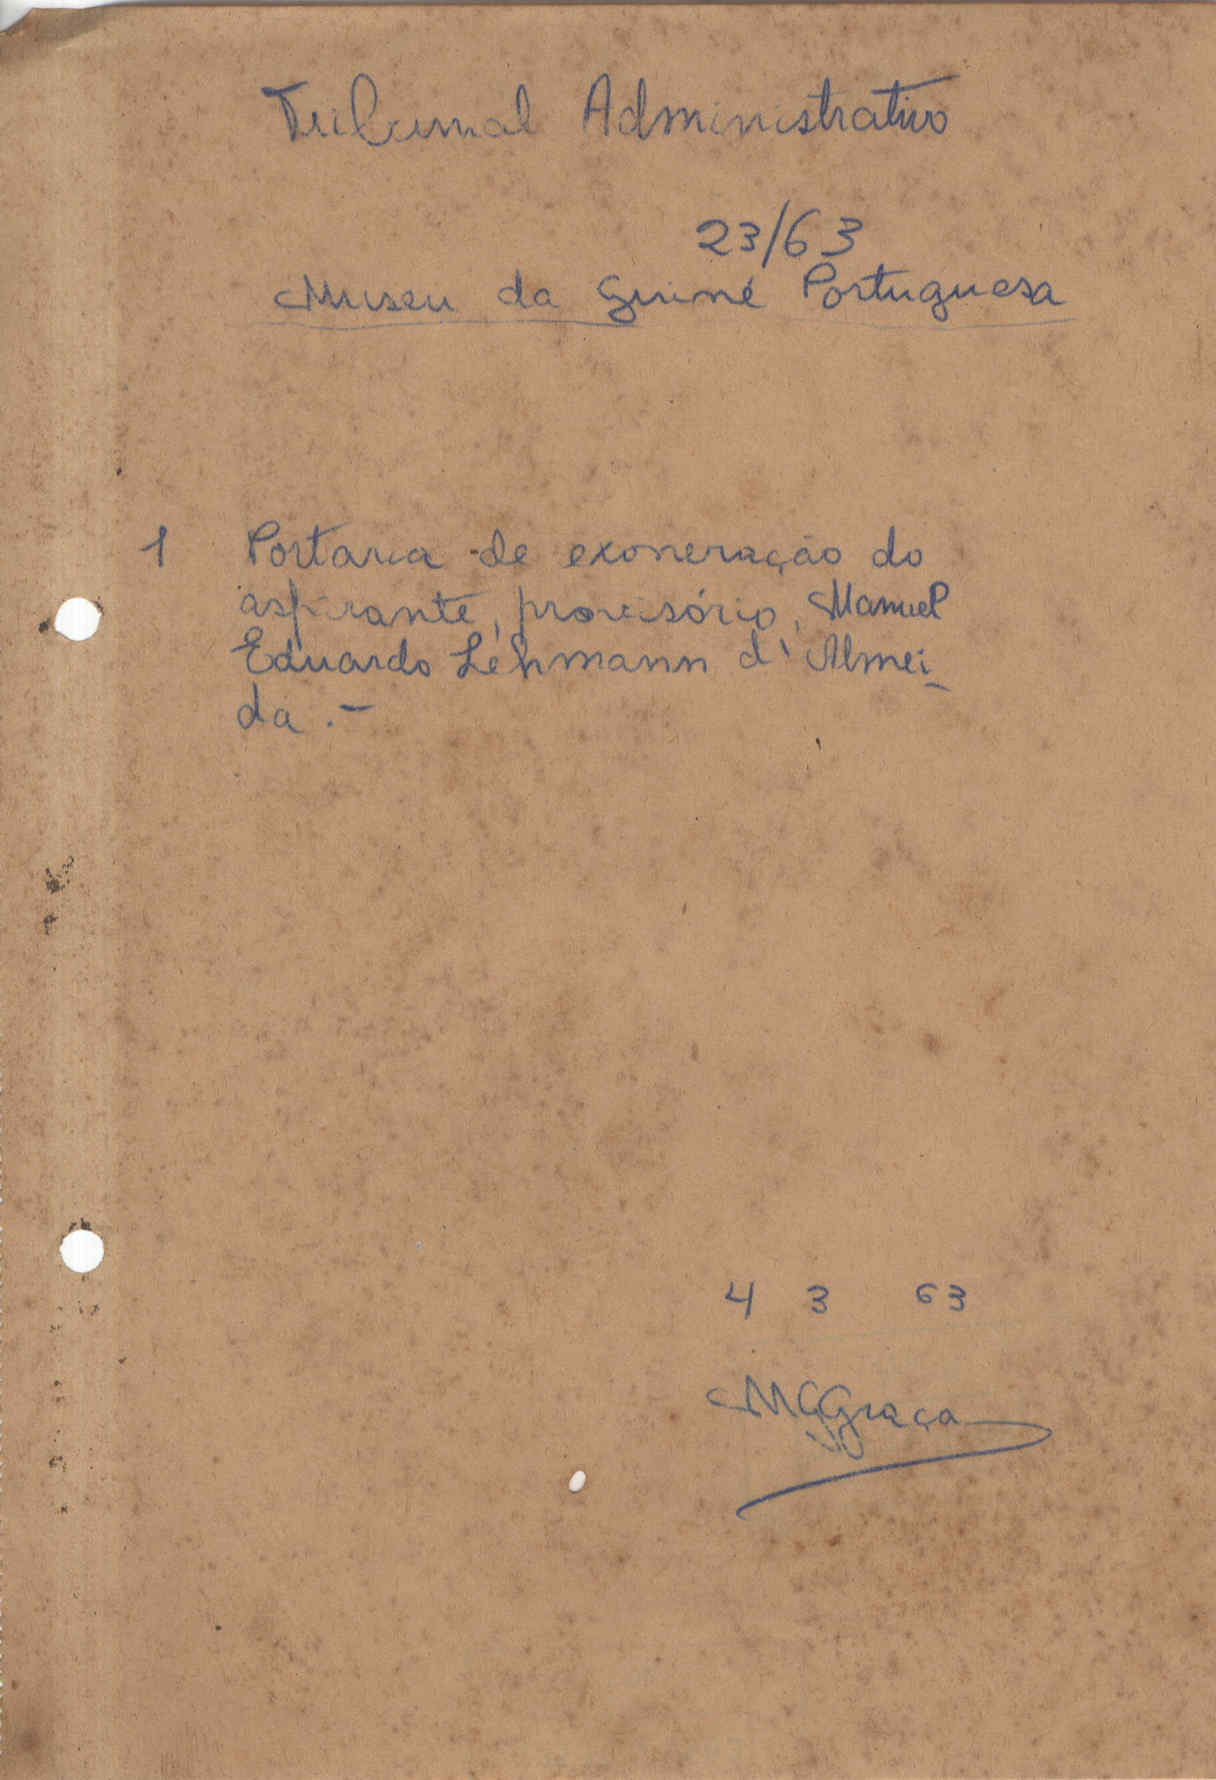 Tribunal Administrativo
23/63
Museu da Guiné Portuguesa
1 Portaria de exoneração do
aspirante, provisório, Manuel
Eduardo Lehmann d'Almei_
da .-
4 3 63
MGGraça